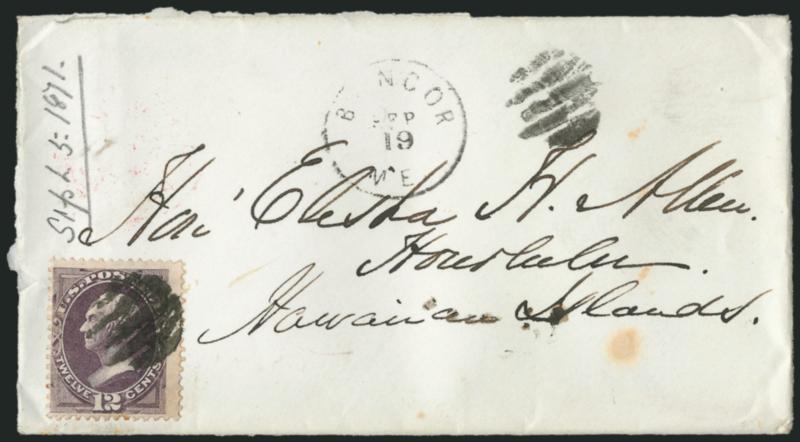 Sept 5. 1871.
BANGOR
SEP
19
ME
Hon' Elisha H. Allen.
Honolulu.
Hawaiian Islands.
U.S. POS
TWELVE 12 CENTS